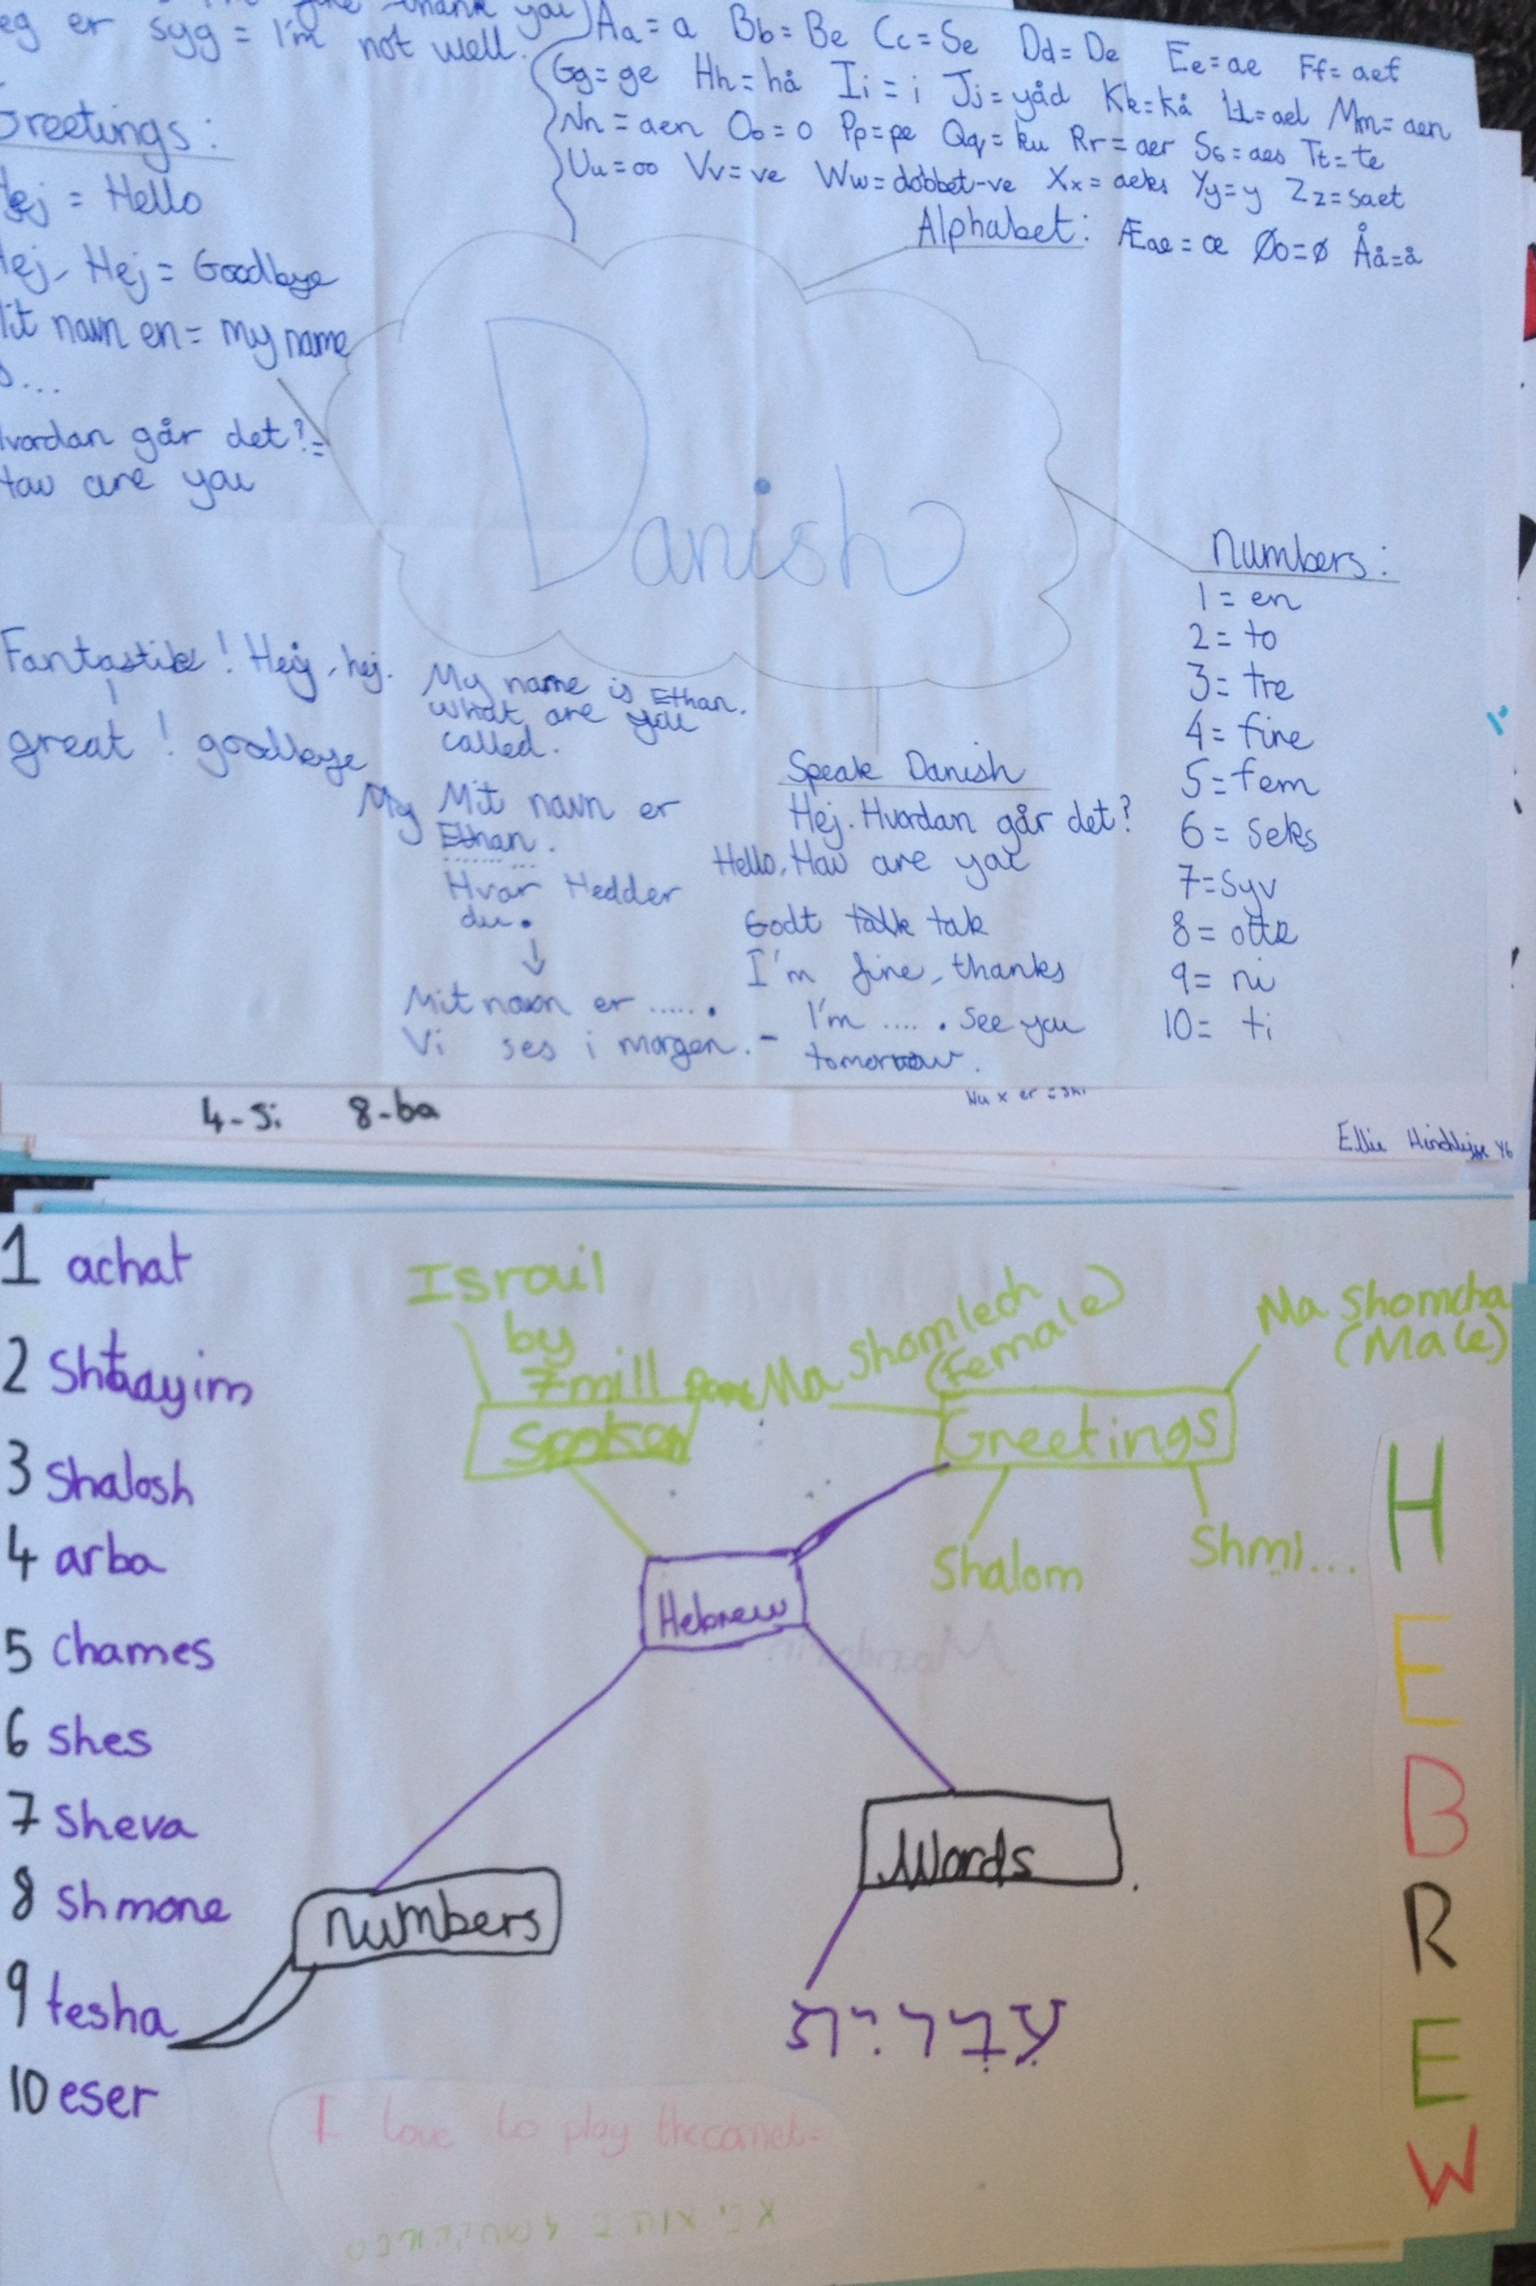 syg = I'm not well.
Aa = a Bb = Be Cc = Se Dd = De Ee = ae Ff = aef
Gg = ge Hh = hå Ii = i Jj = yåd Kk = kå Ll = ael Mm = aen
Nn = aen Oo = o Pp = pe Qq = ku Rr = aer Ss = aes Tt = te
Uu = oo Vv = ve Ww = dobbet-ve Xx = aeks Yy = y Zz = saet
Alphabet: Æae = œ Øo = ø Åå = å
Greetings:
Hej = Hello
Hej, Hej = Goodbye
Mit navn en = my name
Hvordan går det? =
How are you
Danish
Numbers:
1 = en
2 = to
3 = tre
4 = fine
5 = fem
6 = seks
7 = syv
8 = otte
9 = ni
10 = ti
Fantastik! Hej, hej.
great! goodbye
My name is Ethan.
what are you
called.
My Mit navn er
Ethan.
Hvor Hedder
du.
Mit navn er ...... .
Vi ses i morgen. -
Speak Danish
Hej. Hvordan går det?
Hello, How are you
Godt talk tak
I'm fine, thanks
I'm .... . See you
tomorrow.
4-Si 8-ba
Ellie
1 achat
2 Shtaayim
3 Shalosh
4 arba
5 Chames
6 Shes
7 Sheva
8 Shmone
9 tesha
10 eser
Israil
by
7mill
Spoken
Ma Shomlech
(female)
Ma Shomcha
(Male)
Greetings
Shalom
Shmi...
Hebrew
Numbers
Words
HEBREW
I love to play the cornet.